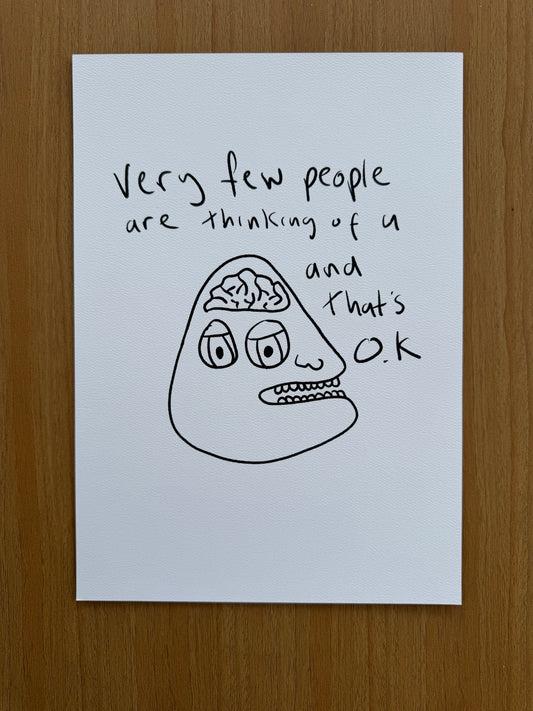 Very few people
are thinking of u
and
that's
O.K